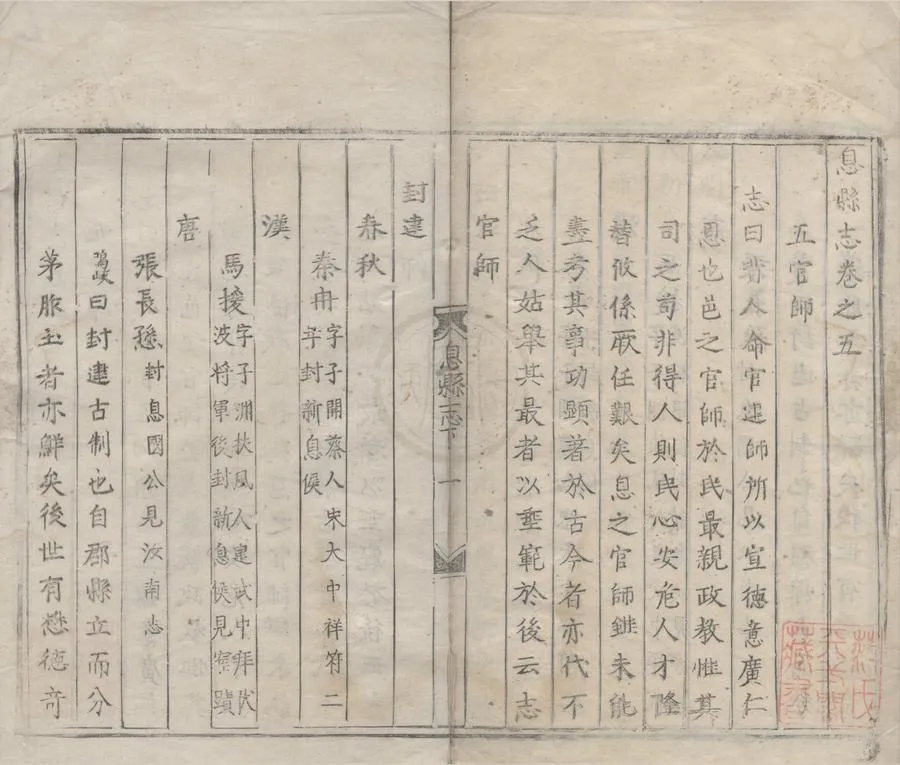 息縣志卷之五
五官師
志曰聖人命官建師所以宣德意廣仁
恩也邑之官師於民最親政教惟其
司之苟非得人則民心安危人才隆
替攸係厥任艱矣息之官師雖未能
盡考其事功顯著於古今者亦代不
乏人姑舉其最者以垂範於後云志
官師
封建
春秋
秦冉字子開蔡人宋大中祥符二
年封新息侯
漢
馬援字子淵扶風人建武中拜伏
波將軍後封新息侯見宦蹟
唐
張長愻封息國公見汝南志
曰封建古制也自郡縣立而分
茅胙土者亦鮮矣後世有懋德奇
息縣志下
一